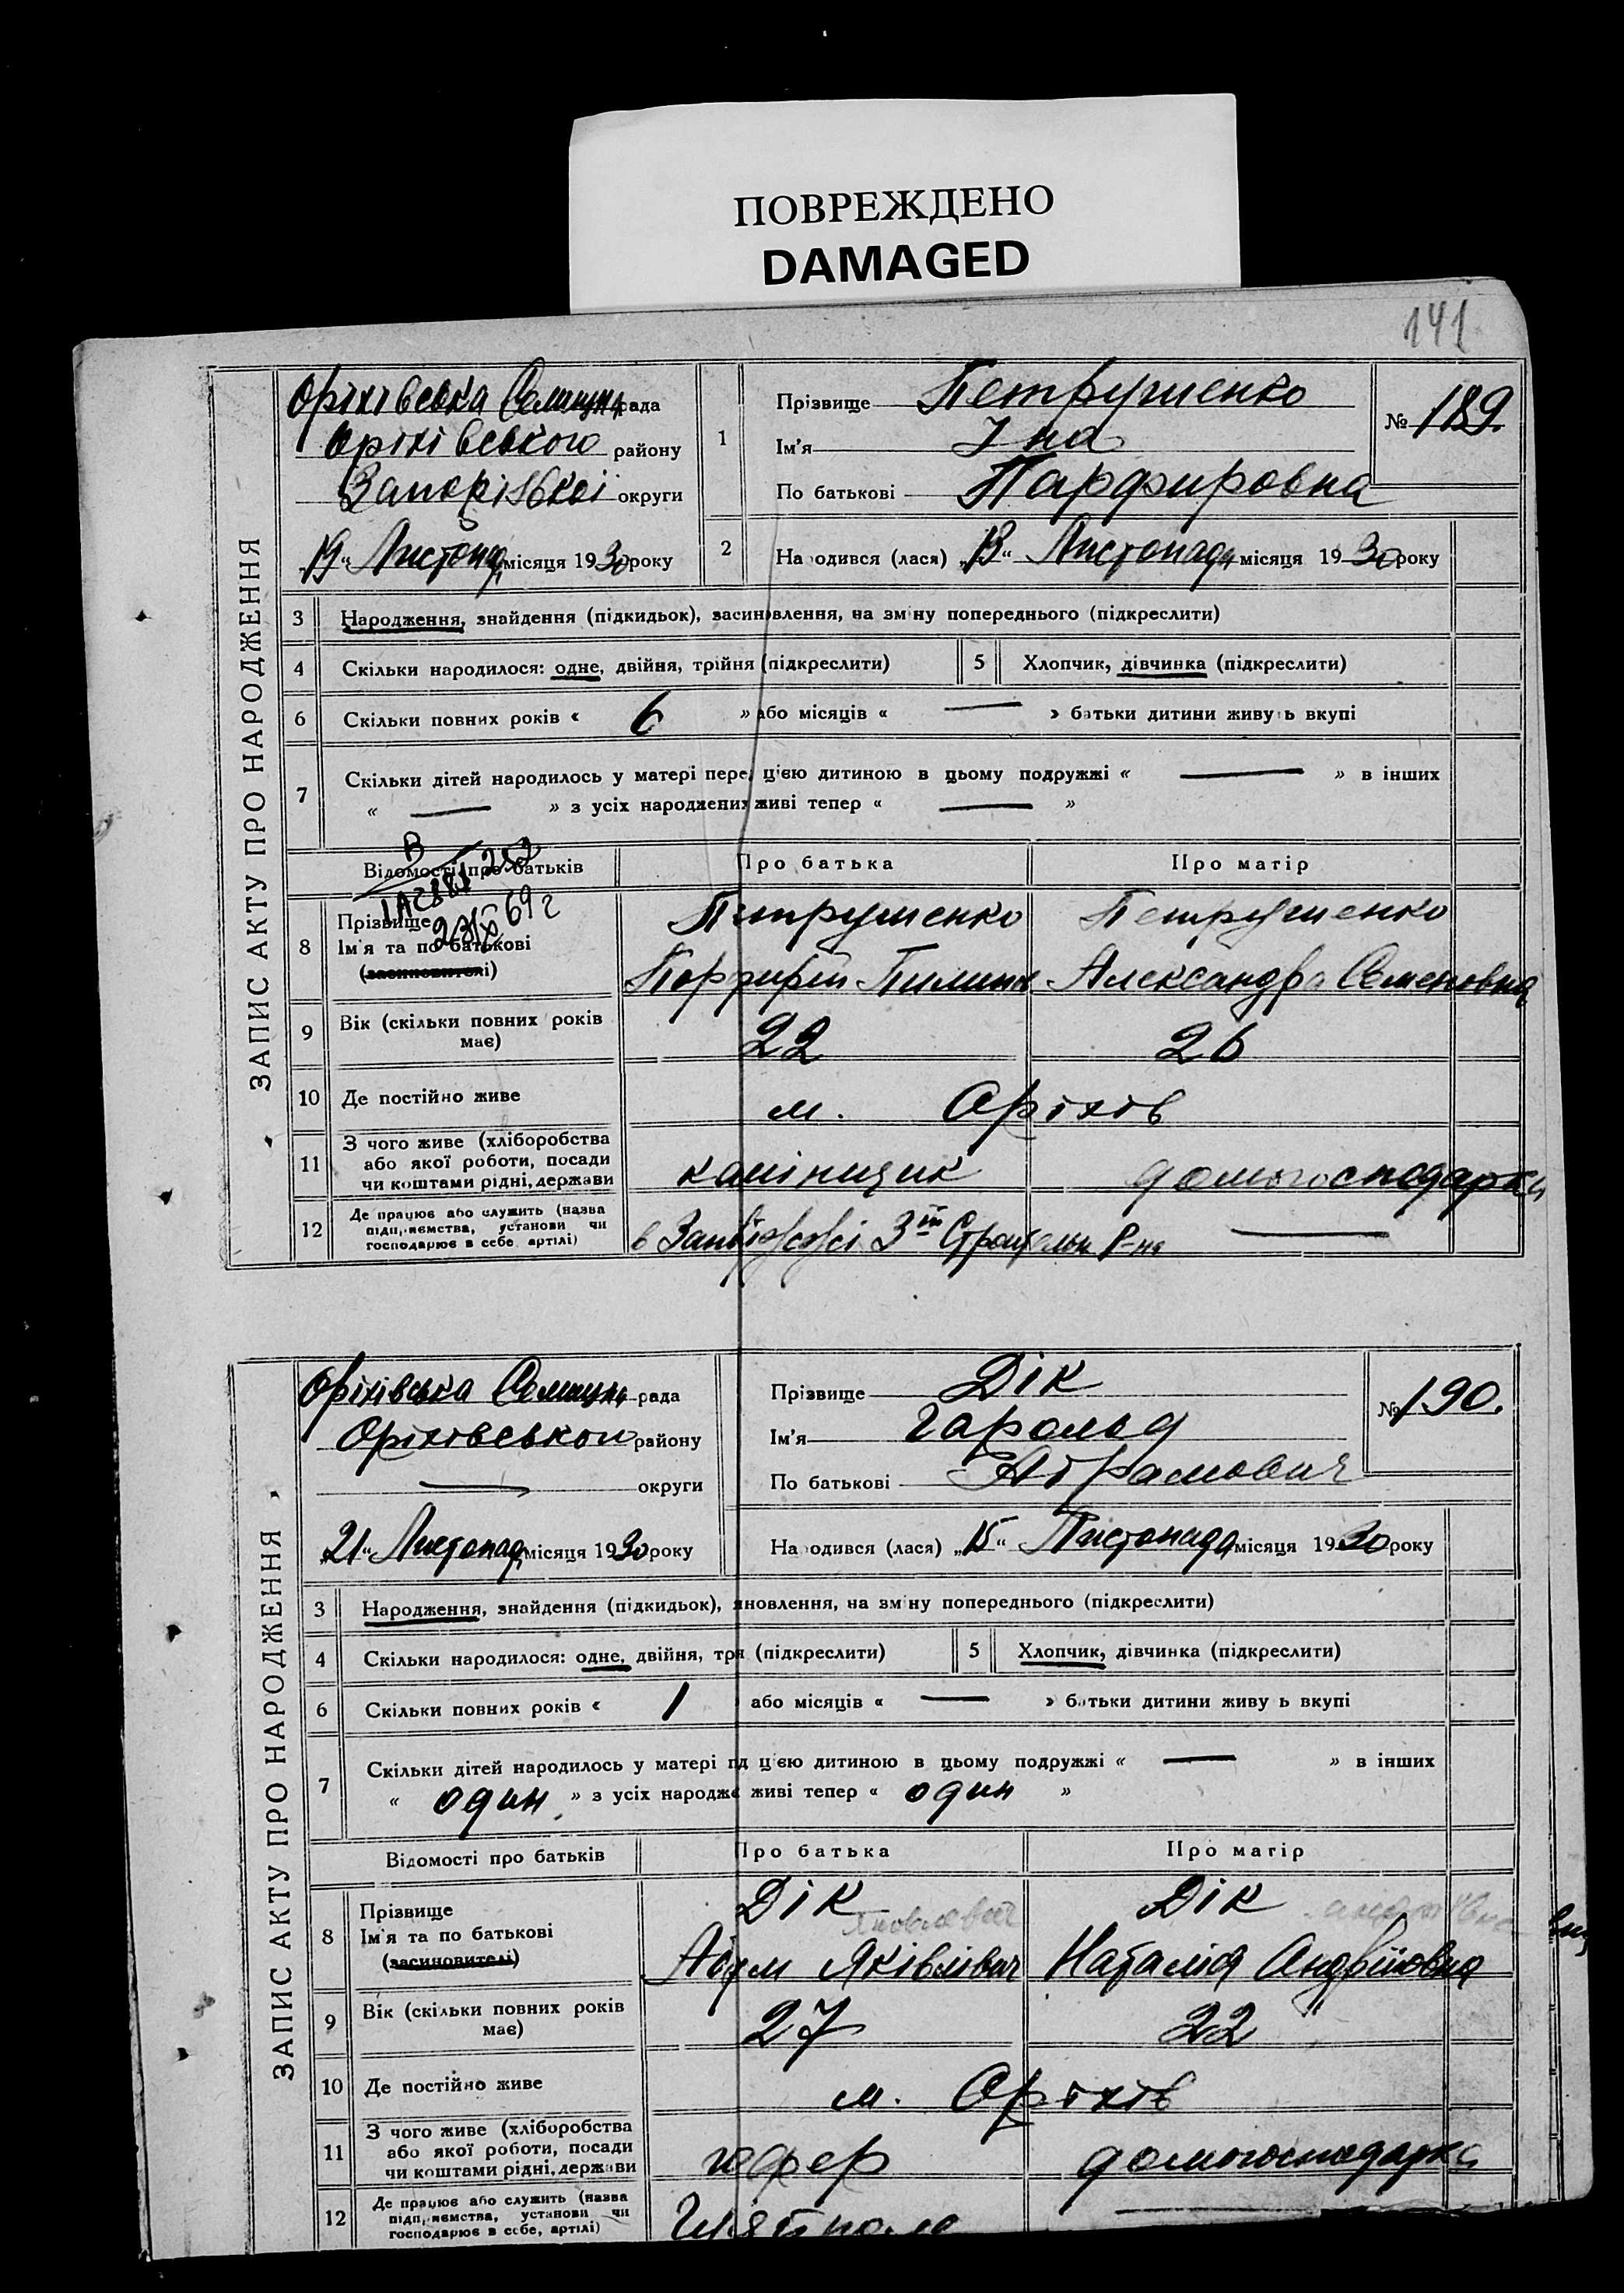 ПОВРЕЖДЕНО
DAMAGED
141
ЗАПИС АКТУ ПРО НАРОДЖЕННЯ
Оріхівська Селищн рада
Оріхівського району
Запорізької округи
„19“ Листопад місяця 1930 року
1
Прізвище Петрушенко
Ім'я Іна
По батькові Парфировна
№ 189.
2 На одився (лася) „13“ Листопада місяця 1930 року
3 Народження, знайдення (підкидьок), засиновлення, на зміну попереднього (підкреслити)
4 Скільки народилося: одне, двійня, трійня (підкреслити) 5 Хлопчик, дівчинка (підкреслити)
6 Скільки повних років « 6 » або місяців « — » батьки дитини живуть вкупі
7 Скільки дітей народилось у матері перед цією дитиною в цьому подружжі « — » в інших
« — » з усіх народжених живі тепер « — »
Відомості про батьків Про батька Про матір
8 Прізвище
Ім'я та по батькові
(засиновителі)
Петрушенко Петрушенко
Порфирій Пилипов Александра Семеновна
69 г
9 Вік (скільки повних років
має) 22 26
10 Де постійно живе м. Оріхів
11 З чого живе (хліборобства
або якої роботи, посади
чи коштами рідні, держави
камінщик домогосподарка
12 Де працює або служить (назва
підприємства, установи чи
господарює в себе, артілі)
в Запоріжжі 3ій Строительн Р-на —
ЗАПИС АКТУ ПРО НАРОДЖЕННЯ
Оріхівська Селищн рада
Оріхівського району
— округи
„21“ Листопад місяця 1930 року
Прізвище Дік
Ім'я Гарольд
По батькові Абрамович
№ 190.
На одився (лася) „15“ Листопада місяця 1930 року
3 Народження, знайдення (підкидьок), яновлення, на зміну попереднього (підкреслити)
4 Скільки народилося: одне, двійня, тря (підкреслити) 5 Хлопчик, дівчинка (підкреслити)
6 Скільки повних років « 1 або місяців « — » батьки дитини живу ь вкупі
7 Скільки дітей народилось у матері пд цією дитиною в цьому подружжі « — » в інших
« один » з усіх народже живі тепер « один »
Відомості про батьків Про батька Про матір
8 Прізвище
Ім'я та по батькові
(засиновителі)
Дік Дік
Яковлевич
Абрам Яківлівич Наталія Андріївна
9 Вік (скільки повних років
має) 27 22
10 Де постійно живе м. Оріхів
11 З чого живе (хліборобства
або якої роботи, посади
чи коштами рідні, держави
шофер домогосподарка
12 Де працює або служить (назва
підприємства, установи чи
господарює в себе, артілі)